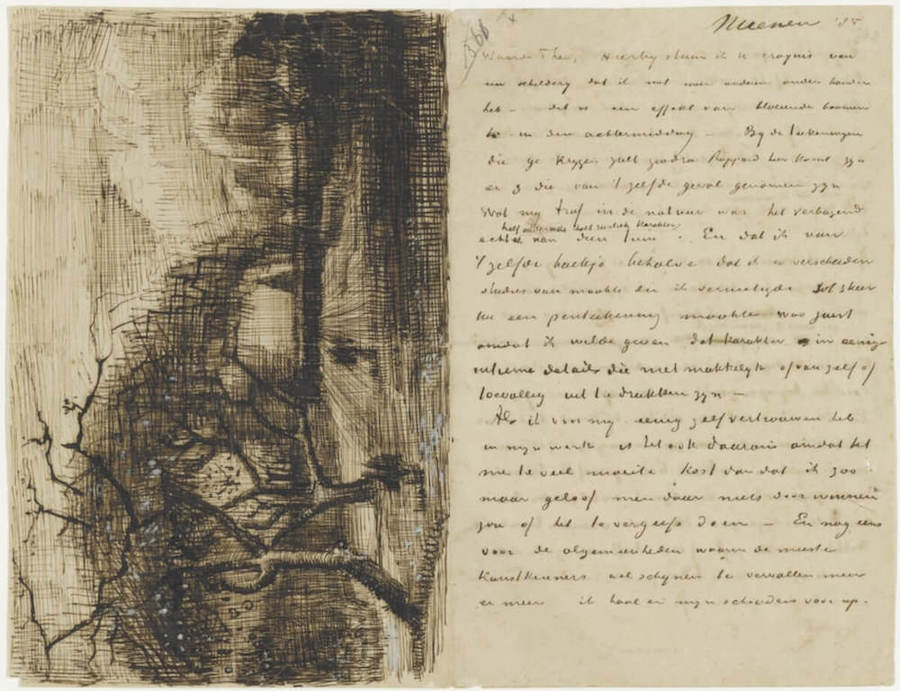 Nuenen '85
366
Waarde Theo, Hierby stuur ik U croquis van
een schildery dat ik met nog anderen onder handen
heb – dat is een effekt van bloeiende boomen
in den achtermiddag – By de teekeningen
die ge krygen zult zoodra Rappard hier komt zyn
er 3 die van 't zelfde geval genomen zyn
Wat my trof in de natuur was het verbazend
half ouderwets half rustiek karakter
echte van dien tuin. En dat ik van
't zelfde hoekje behalve dat ik er verscheiden
studies van maakte en ik vernietigde tot 3 keer
toe een penteekening maakte was juist
omdat ik wilde geven dat karakter in eenige
intieme details die niet makkelyk of van zelf of
toevallig uit te drukken zyn –
Als ik voor my eenig zelfvertrouwen heb
in myn werk is het ook daarom omdat het
me te veel moeite kost dan dat ik zoo
maar geloof men daar niets door winnen
zou of het te vergeefs doen – En nog eens
voor de algemeenheden waarin de meeste
kunstkenners wel schynen te vervallen meer
en meer ik haal er myn schouders voor op.